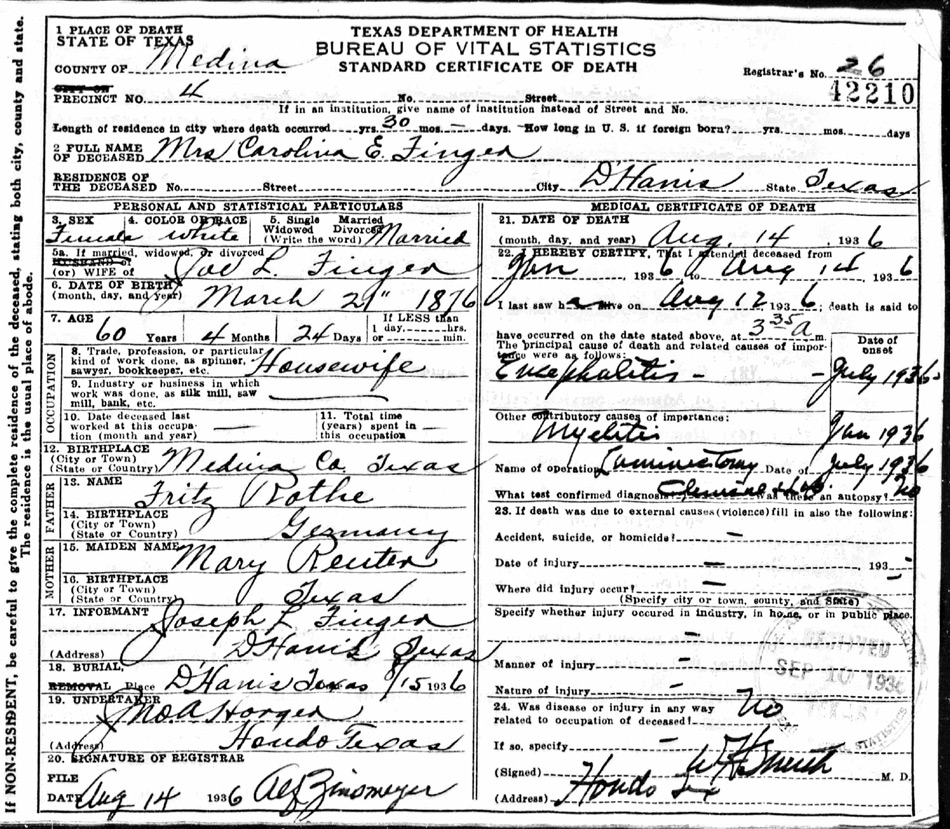 1 PLACE OF DEATH
STATE OF TEXAS
COUNTY OF Medina
TEXAS DEPARTMENT OF HEALTH
BUREAU OF VITAL STATISTICS
STANDARD CERTIFICATE OF DEATH
Registrar's No. 26
42210
CITY OR
PRECINCT NO. 4 No. Street
If in an institution, give name of institution instead of Street and No.
Length of residence in city where death occurred yrs. 30 mos. — days. How long in U. S. if foreign born? yrs. mos. days
2 FULL NAME OF DECEASED Mrs Carolina E. Finger
RESIDENCE OF THE DECEASED No. Street City D'Hanis State Texas
PERSONAL AND STATISTICAL PARTICULARS
3. SEX 4. COLOR OR RACE 5. Single Married Widowed Divorced (Write the word) Married
Female White
5a. If married, widowed, or divorced
HUSBAND of
(or) WIFE of Joe L. Finger
6. DATE OF BIRTH
(month, day, and year) March 21" 1876
7. AGE 60 Years 4 Months 24 Days If LESS than 1 day, hrs. or min.
OCCUPATION
8. Trade, profession, or particular kind of work done, as spinner, sawyer, bookkeeper, etc. Housewife
9. Industry or business in which work was done, as silk mill, saw mill, bank, etc. —
10. Date deceased last worked at this occupation (month and year) —
11. Total time (years) spent in this occupation —
12. BIRTHPLACE
(City or Town)
(State or Country) Medina Co. Texas
FATHER
13. NAME Fritz Rothe
14. BIRTHPLACE
(City or Town)
(State or Country) Germany
MOTHER
15. MAIDEN NAME Mary Reuter
16. BIRTHPLACE
(City or Town)
(State or Country) Texas
17. INFORMANT Joseph L Finger
(Address) D'Hanis Texas
18. BURIAL,
REMOVAL Place D'Hanis Texas 8/15 1936
19. UNDERTAKER
Jno A Horger
(Address) Hondo Texas
20. SIGNATURE OF REGISTRAR
FILE
DATE Aug 14 1936 Alf Zinsmeyer
MEDICAL CERTIFICATE OF DEATH
21. DATE OF DEATH
(month, day, and year) Aug. 14, 1936
22. I HEREBY CERTIFY, That I attended deceased from
Jan, 1936 to Aug 14, 1936
I last saw h alive on Aug 12, 1936; death is said to
have occurred on the date stated above, at 3 35 a m.
The principal cause of death and related causes of importance were as follows: Date of onset
Encephalitis - - July 1936
Other contributory causes of importance:
Myelitis Jan 1936
Name of operation Laminectomy Date of July 1936
What test confirmed diagnosis? Was there an autopsy? no
23. If death was due to external causes (violence) fill in also the following:
Accident, suicide, or homicide? —
Date of injury — 193 —
Where did injury occur? —
(Specify city or town, county, and State)
Specify whether injury occured in industry, in home, or in public place.
—
Manner of injury —
Nature of injury —
24. Was disease or injury in any way related to occupation of deceased? No
If so, specify —
(Signed) W H Smith M. D.
(Address) Hondo Tex
RECEIVED
SEP 10 1936
STATISTICS
If NON-RESIDENT, be careful to give the complete residence of the deceased, stating both city, county and state.
The residence is the usual place of abode.